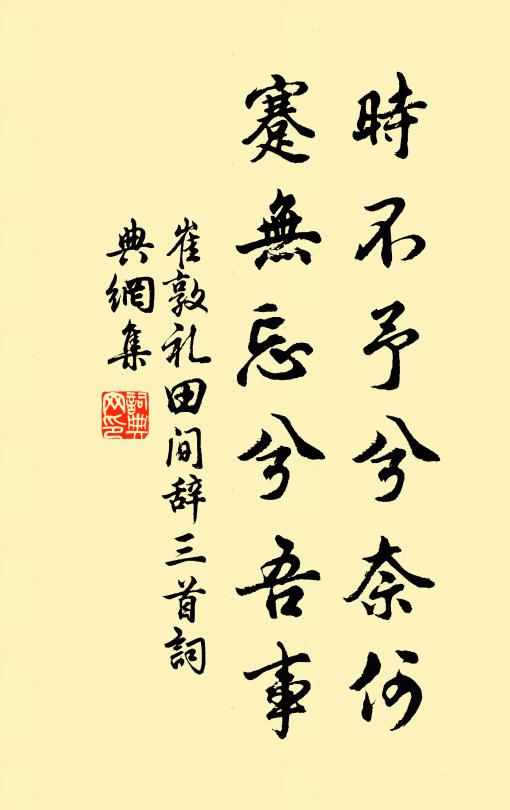 時不予兮奈何
蹇無忘兮吾事
崔敦礼田间辞三首詞
典網集
詞典网印